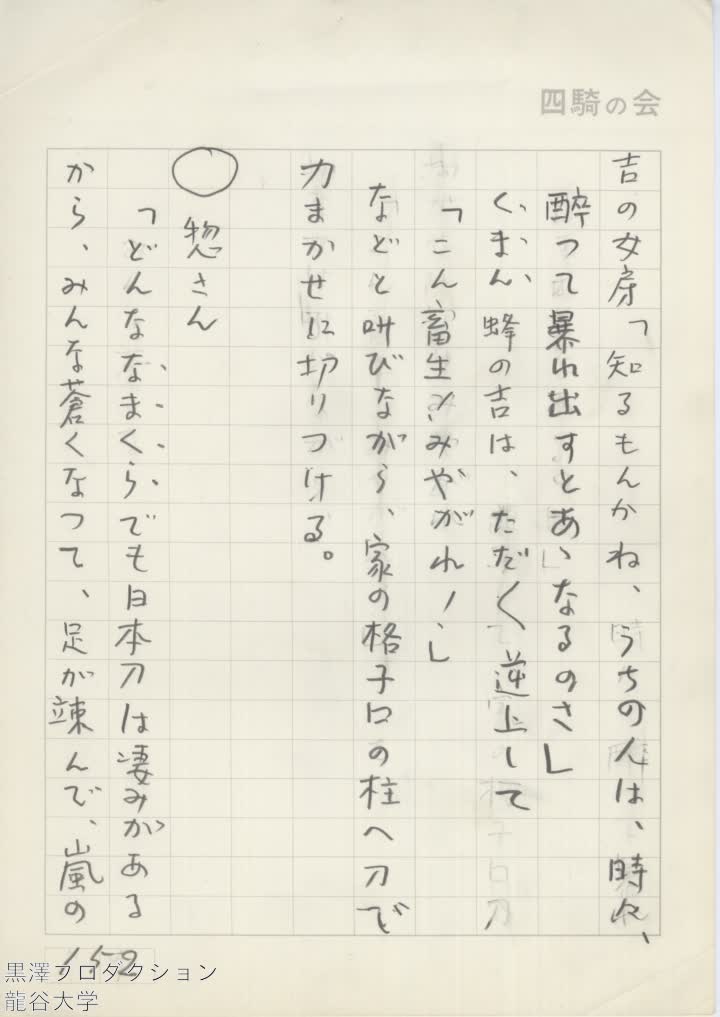 四騎の会
吉の女房「知るもんかね、うちの人は、時々、
酔つて暴れ出すとあゝなるのさ」
くまん蜂の吉は、たゞ〱逆上して
「こん畜生！みやがれ！」
などと叫びながら、家の格子口の柱へ刀で
力まかせに切りつける。
○惣さん
「どんななまくらでも日本刀は凄みがある
から、みんな蒼くなつて、足が竦んで、嵐の
152
黒澤プロダクション
龍谷大学